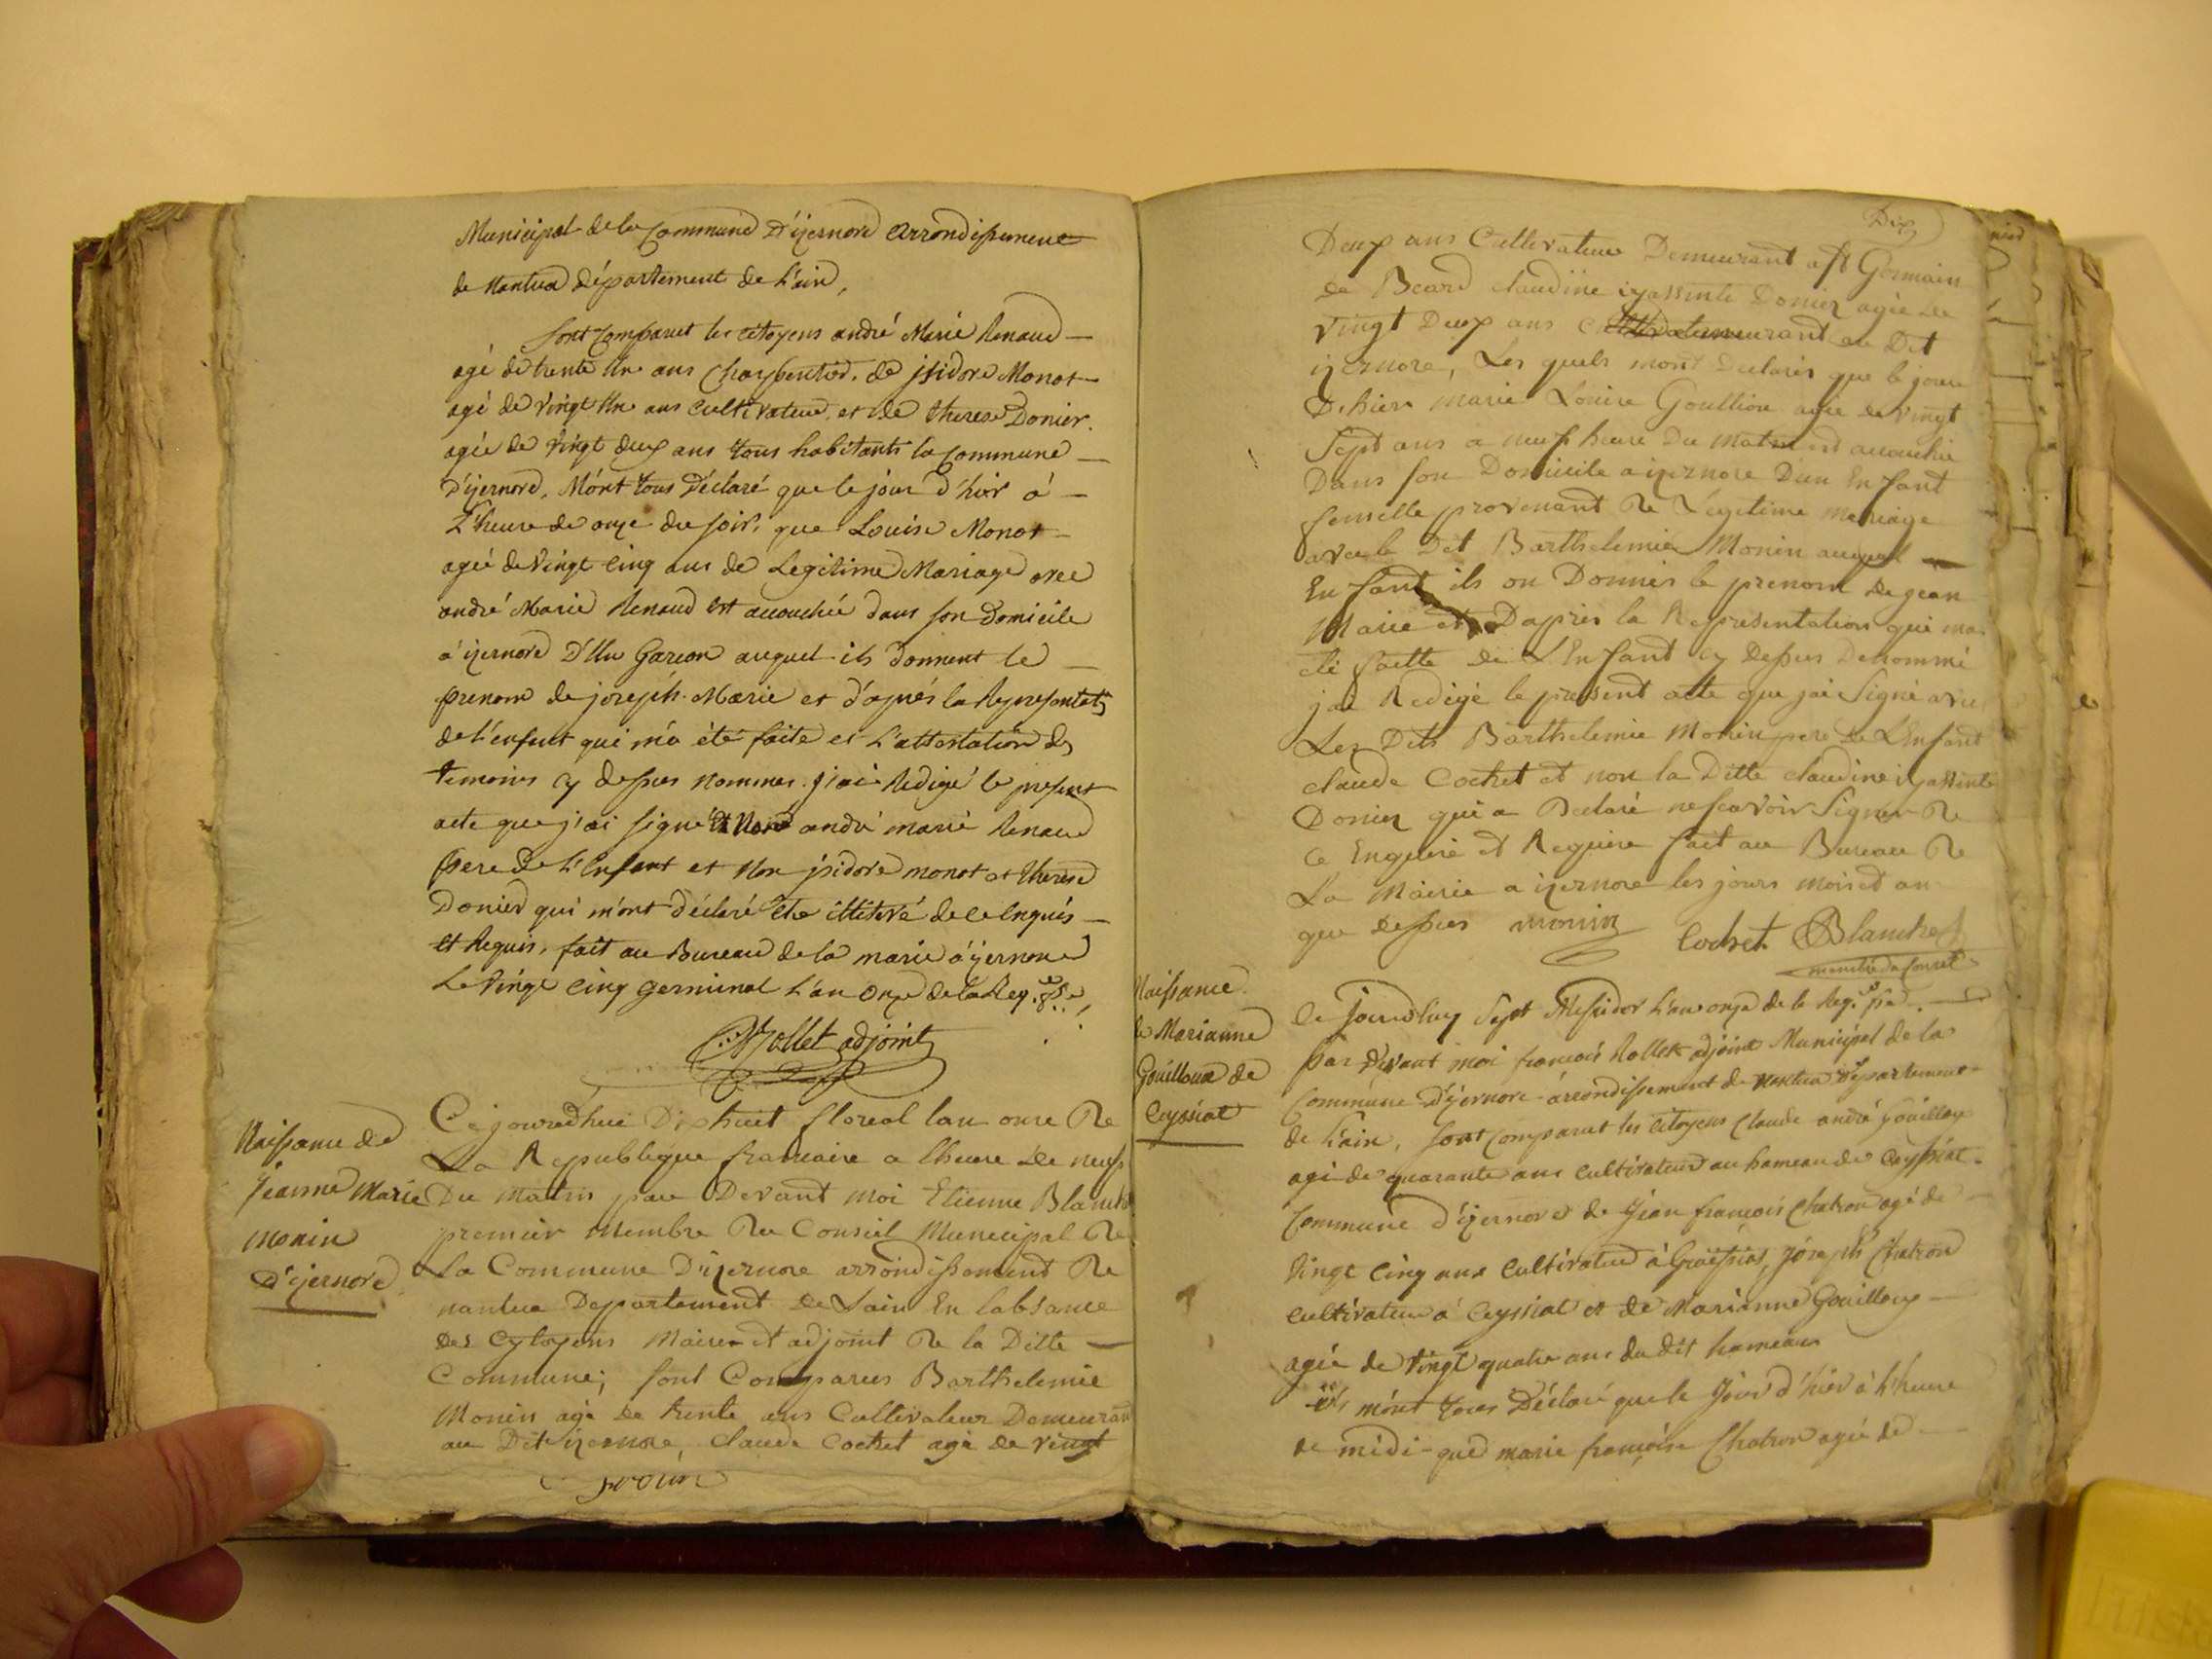 Municipal de la Commune D'izernore arrondissement
de Nantua département de L'ain,
sont comparut les citoyens andré Marie Renaud —
agé de trente Un ans Charpentier, de jsidore Monot —
agé de vingt Un ans cultivateur, et de therese Donier.
agée de vingt deux ans tous habitants la Commune —
D'izernore, M'ont tous déclaré que le jour d'hier à —
L'heure de onze du soir, que Louise Monot —
ageé de vingt cinq ans de Legitime Mariage avec
andré Marie Renaud est accouchée dans son domicile
à izernore D'Un Garcon auquel ils donnent le —
prenom de joseph-Marie et d'après la Representat
de l'enfant qui m'a été faite et L'attestation des
temoins cy dessus nommes. j'ai Redigé le present
acte que j'ai signé andré marie Renaud
pere de L'Enfant et Non jsidore monot et therese
Donier qui m'ont déclaré être illiteré de ce Enquis —
et Requis, fait au Bureau de la marie à izernore
Le Vingt cinq germinal L'an onze de la Rep.
Rollet adjoint
Naissance de
Jeanne Marie
Monin
D'izernore
Cejourdhui Dixhuit floreal lan onze De
La Republique francaise a lheure de neuf
Du matin par Devant moi Etienne Blanche
premier membre Du Conseil Municipal De
La Commune Dizernore arrondissement De
nantua Departement de Lain En labsance
des Cytoyens Maire et adjoint De la Ditte —
Commune; sont Comparus Barthelemie
Monin agé de trente ans Cultivateur Demeurant
au Dit izernore, claude Cochet agé de vingt
Dix
Deux ans Cultivateur Demeurant a St Germain
de Beard claudine iyassinte Donier agée de
vingt Deux ans Demeurant au Dit
izernore, Les quels mont Declarés que le jour
Dhier marie Louise Goullion agée de vingt
Sept ans a neuf heure Du matin est accouchée
Dans son Domicile a izernore Dun Enfant
femelle provenant De Légitime mariage
avec le Dit Barthelemie Monin auquel —
Enfant ils on Donnés le prenom de jean
Marie et Dapres la Representation qui ma
été faitte de L'Enfant cy dessus Denommé
jai Redigé le present acte que jai Signé avec
Les Dits Barthelemie Monin pere de LEnfant
claude Cochet et non la Ditte claudine iyassinte
Donier qui a Declaré ne scavoir Signer De
ce Enquise et Requise fait au Bureau De
La Mairie a izernore les jours mois et an
que dessus monin Cochet Blanche
membre du Conseil
Naissance
de Marianne
Gouilloux de
Ceyssiat
Ce jourdhuy Sept Messidor L'an onze de la Rep.
par devant moi francois Rollet adjoint Municipal de la
Commune D'izernore arrondissement de Nantua département
de L'ain, sont comparut les citoyens Claude andré Gouilloux
agé de quarante ans cultivateur au hameau de Ceyssiat.
Commune d'izernore de Jean francois Chatron agé de
Vingt cinq ans Cultivateur à Joseph Chatron
cultivateur à Ceyssiat et de Marianne Gouilloux —
agée de vingt quatre ans du dit hameau
ils m'ont tous Déclaré que le Jour d'hier à L'heure
de midi que marie françoise Chatron agée de —